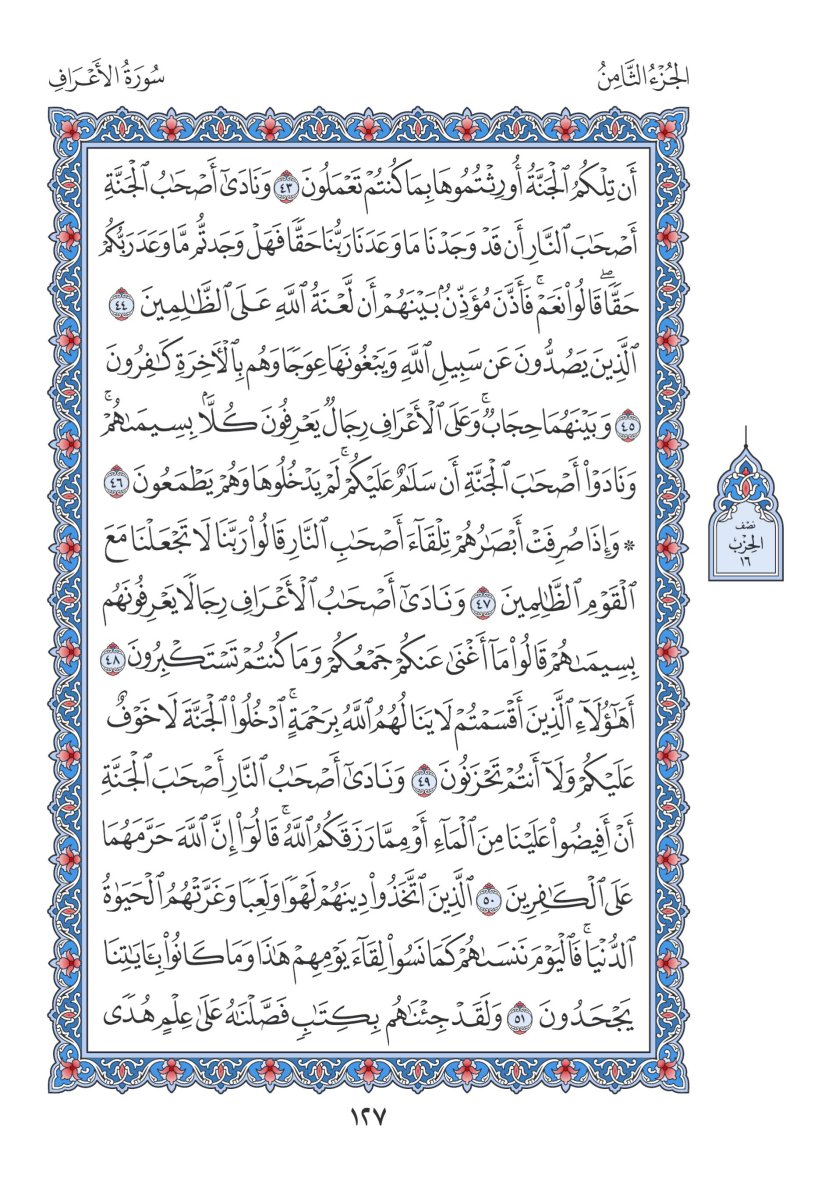 الجُزْءُ الثَّامِنُ
سُورَةُ الأَعْرَافِ
أَن تِلْكُمُ ٱلْجَنَّةُ أُورِثْتُمُوهَا بِمَا كُنتُمْ تَعْمَلُونَ ٤٣ وَنَادَىٰٓ أَصْحَٰبُ ٱلْجَنَّةِ
أَصْحَٰبَ ٱلنَّارِ أَن قَدْ وَجَدْنَا مَا وَعَدَنَا رَبُّنَا حَقًّا فَهَلْ وَجَدتُّم مَّا وَعَدَ رَبُّكُمْ
حَقًّاۖ قَالُوا۟ نَعَمْۚ فَأَذَّنَ مُؤَذِّنٌۢ بَيْنَهُمْ أَن لَّعْنَةُ ٱللَّهِ عَلَى ٱلظَّٰلِمِينَ ٤٤
ٱلَّذِينَ يَصُدُّونَ عَن سَبِيلِ ٱللَّهِ وَيَبْغُونَهَا عِوَجًا وَهُم بِٱلْأَخِرَةِ كَٰفِرُونَ
٤٥ وَبَيْنَهُمَا حِجَابٌۚ وَعَلَى ٱلْأَعْرَافِ رِجَالٌ يَعْرِفُونَ كُلًّۢا بِسِيمَىٰهُمْۚ
وَنَادَوْا۟ أَصْحَٰبَ ٱلْجَنَّةِ أَن سَلَٰمٌ عَلَيْكُمْۚ لَمْ يَدْخُلُوهَا وَهُمْ يَطْمَعُونَ ٤٦
* وَإِذَا صُرِفَتْ أَبْصَٰرُهُمْ تِلْقَآءَ أَصْحَٰبِ ٱلنَّارِ قَالُوا۟ رَبَّنَا لَا تَجْعَلْنَا مَعَ
ٱلْقَوْمِ ٱلظَّٰلِمِينَ ٤٧ وَنَادَىٰٓ أَصْحَٰبُ ٱلْأَعْرَافِ رِجَالًا يَعْرِفُونَهُم
بِسِيمَىٰهُمْ قَالُوا۟ مَآ أَغْنَىٰ عَنكُمْ جَمْعُكُمْ وَمَا كُنتُمْ تَسْتَكْبِرُونَ ٤٨
أَهَٰٓؤُلَآءِ ٱلَّذِينَ أَقْسَمْتُمْ لَا يَنَالُهُمُ ٱللَّهُ بِرَحْمَةٍۚ ٱدْخُلُوا۟ ٱلْجَنَّةَ لَا خَوْفٌ
عَلَيْكُمْ وَلَآ أَنتُمْ تَحْزَنُونَ ٤٩ وَنَادَىٰٓ أَصْحَٰبُ ٱلنَّارِ أَصْحَٰبَ ٱلْجَنَّةِ
أَنْ أَفِيضُوا۟ عَلَيْنَا مِنَ ٱلْمَآءِ أَوْ مِمَّا رَزَقَكُمُ ٱللَّهُۚ قَالُوٓا۟ إِنَّ ٱللَّهَ حَرَّمَهُمَا
عَلَى ٱلْكَٰفِرِينَ ٥٠ ٱلَّذِينَ ٱتَّخَذُوا۟ دِينَهُمْ لَهْوًا وَلَعِبًا وَغَرَّتْهُمُ ٱلْحَيَوٰةُ
ٱلدُّنْيَاۚ فَٱلْيَوْمَ نَنسَىٰهُمْ كَمَا نَسُوا۟ لِقَآءَ يَوْمِهِمْ هَٰذَا وَمَا كَانُوا۟ بِـَٔايَٰتِنَا
يَجْحَدُونَ ٥١ وَلَقَدْ جِئْنَٰهُم بِكِتَٰبٍ فَصَّلْنَٰهُ عَلَىٰ عِلْمٍ هُدًى
نِصْف
الحِزْب
١٦
١٢٧